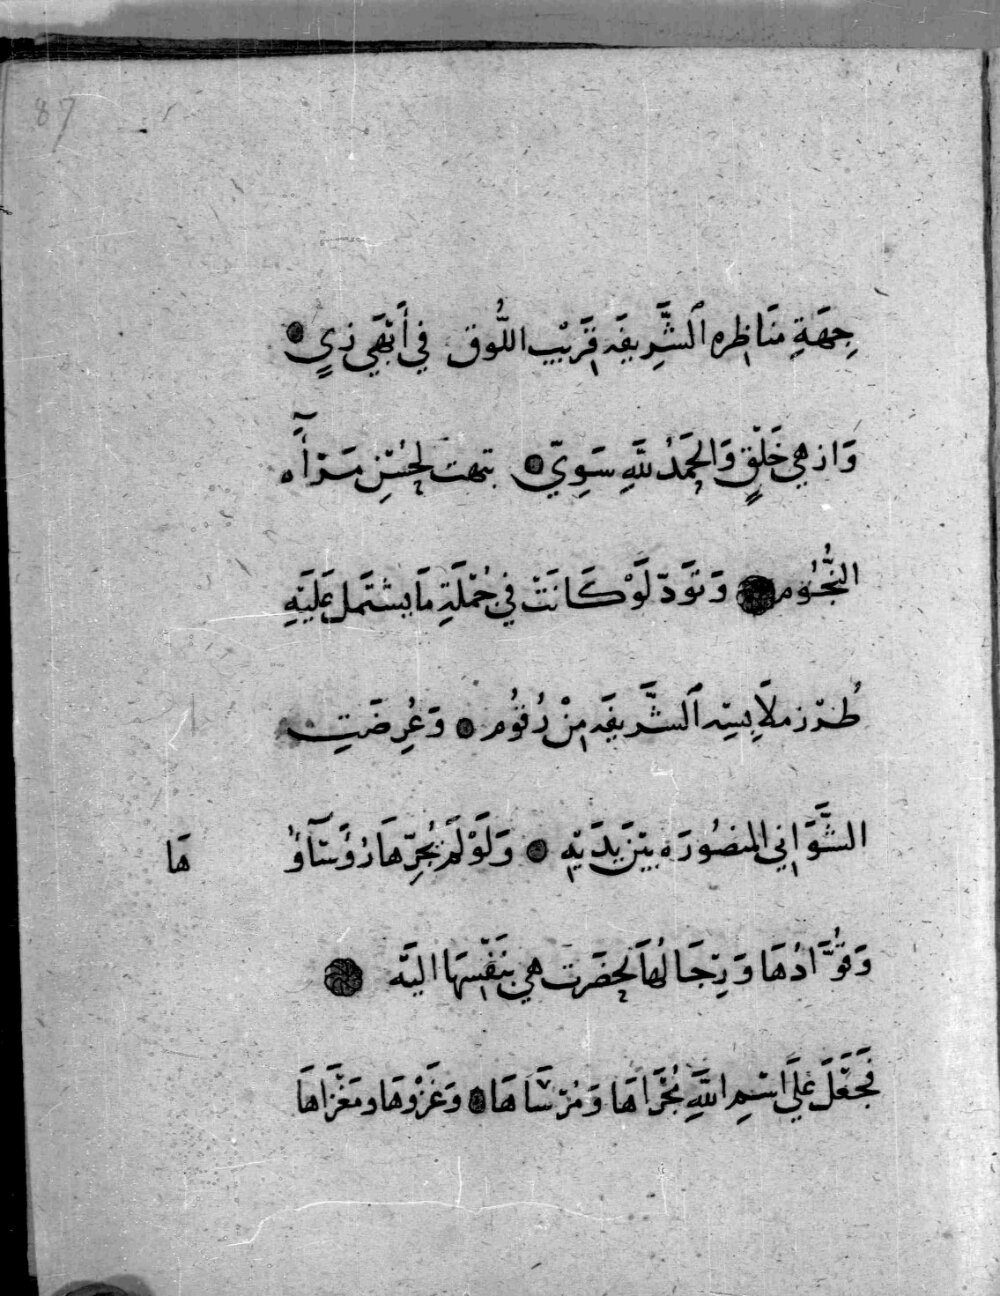 87
جِهَةِ مَنَاظِرِه ٱلشَّرِيفَه قَرِيْبِ اللُّوق في أَبْهَى زيٍ
وَاذ هِي خَلْقٍ وَالحَمَدُ للَّهِ سَوِيّ تبهت لحُسْنِ مَرْآَه
النُّجُوم وَتَوَدّ لَوْ كَانَتْ في جُمْلَةِ مَا يشتَمل عَليَهِ
طُرز ملاَبِسِه ٱلشَّرَيفَه مِنْ رُقُوم وَعُرِضَتِ
الشَّوَاني المنصُورَه بيَنَ يدَيْهِ وَلَوْ لَمْ يُجرّهَا رُؤَسَآؤُ هَا
وَقُوَّادُهَا وَرِجَالُهَا لحضَرَت هي بنَفْسِهَا اليَه
فَجَعَلَ عَلَى اسْمِ اللَّهِ مُجْرَاهَا وَمُرْسَاهَا وَغَزْوهَا ومَغْزَاهَا